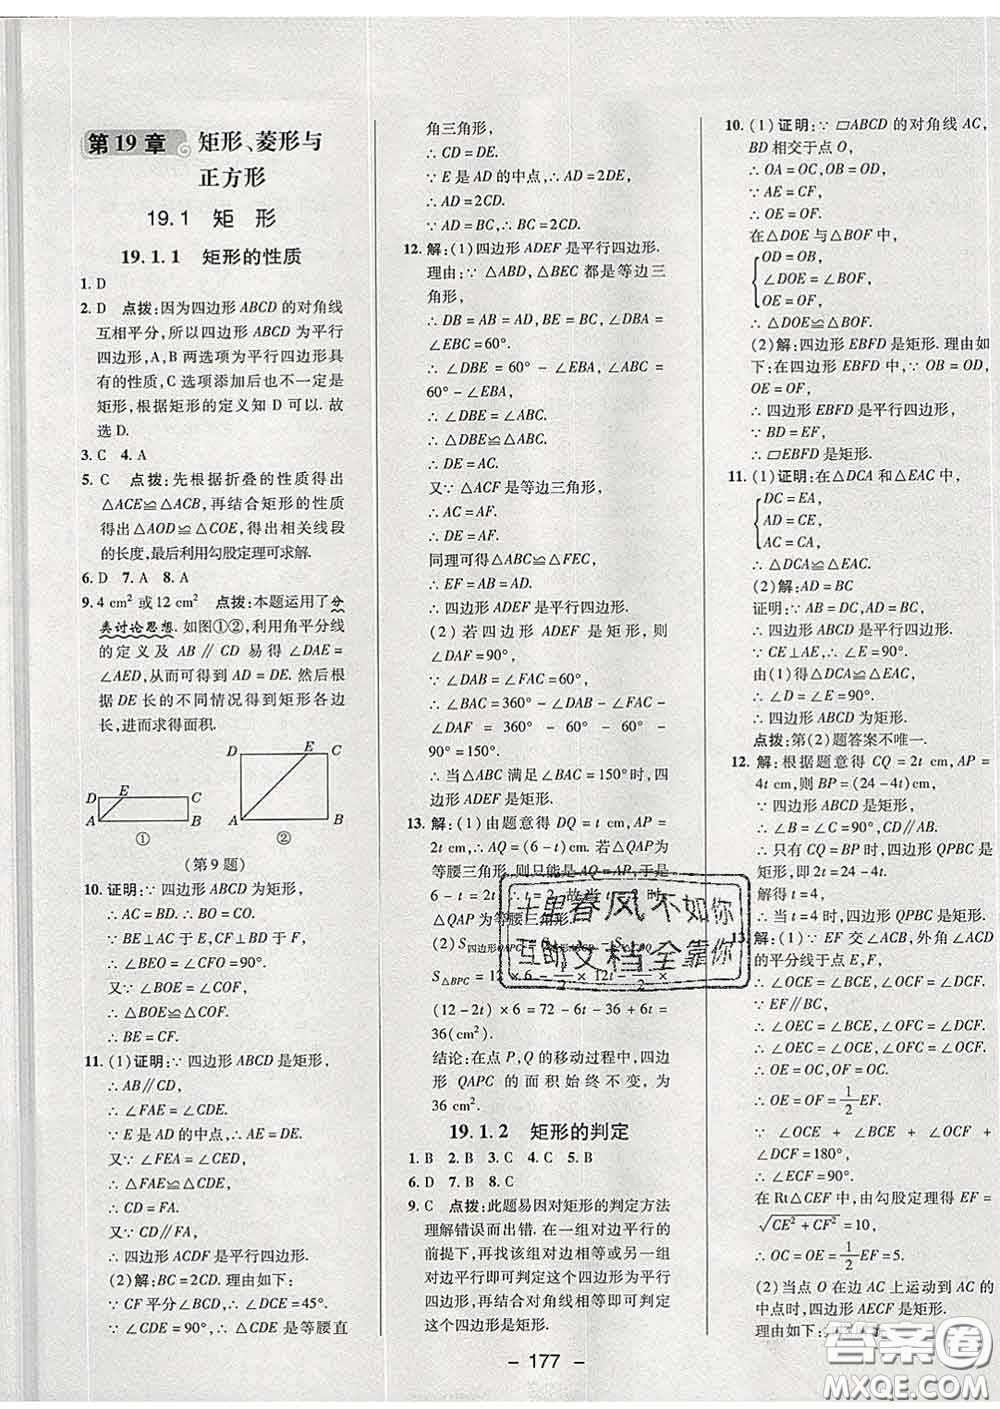 第19章 矩形、菱形与
正方形
19.1 矩 形
19.1.1 矩形的性质
1. D
2. D 点拨:因为四边形 ABCD 的对角线
互相平分,所以四边形 ABCD 为平行
四边形,A,B 两选项为平行四边形具
有的性质,C 选项添加后也不一定是
矩形,根据矩形的定义知 D 可以. 故
选 D.
3. C 4. A
5. C 点拨:先根据折叠的性质得出
△ACE≌△ACB,再结合矩形的性质
得出△AOD≌△COE,得出相关线段
的长度,最后利用勾股定理可求解.
6. D 7. A 8. A
9. 4 cm² 或 12 cm² 点拨:本题运用了分
类讨论思想. 如图①②,利用角平分线
的定义及 AB∥CD 易得∠DAE=
∠AED,从而得到 AD=DE. 然后根
据 DE 长的不同情况得到矩形各边
长,进而求得面积.
D E C
A B
①
D E C
A B
②
(第9题)
10. 证明:∵四边形 ABCD 为矩形,
∴AC=BD. ∴BO=CO.
∵BE⊥AC 于 E,CF⊥BD 于 F,
∴∠BEO=∠CFO=90°.
又∵∠BOE=∠COF,
∴△BOE≌△COF.
∴BE=CF.
11. (1)证明:∵四边形 ABCD 是矩形,
∴AB∥CD,
∴∠FAE=∠CDE.
∵E 是 AD 的中点,∴AE=DE.
又∵∠FEA=∠CED,
∴△FAE≌△CDE,
∴CD=FA.
又∵CD∥FA,
∴四边形 ACDF 是平行四边形.
(2)解:BC=2CD. 理由如下:
∵CF 平分∠BCD,∴∠DCE=45°.
∵∠CDE=90°,∴△CDE 是等腰直
角三角形,
∴CD=DE.
∵E 是 AD 的中点,∴AD=2DE,
∴AD=2CD.
∵AD=BC,∴BC=2CD.
12. 解:(1)四边形 ADEF 是平行四边形.
理由:∵△ABD,△BEC 都是等边三
角形,
∴DB=AB=AD,BE=BC,∠DBA=
∠EBC=60°.
∴∠DBE=60°-∠EBA,∠ABC=
60°-∠EBA,
∴∠DBE=∠ABC.
∴△DBE≌△ABC.
∴DE=AC.
又∵△ACF 是等边三角形,
∴AC=AF.
∴DE=AF.
同理可得△ABC≌△FEC,
∴EF=AB=AD.
∴四边形 ADEF 是平行四边形.
(2)若四边形 ADEF 是矩形,则
∠DAF=90°,
∵∠DAB=∠FAC=60°,
∴∠BAC=360°-∠DAB-∠FAC-
∠DAF=360°-60°-60°-
90°=150°.
∴当△ABC 满足∠BAC=150°时,四
边形 ADEF 是矩形.
13. 解:(1)由题意得 DQ=t cm,AP=
2t cm,∴AQ=(6-t)cm. 若△QAP为
等腰三角形,则只能是 AQ=AP,于是
6-t=2t, t=2. 故当 t=2 时,
△QAP 为等腰三角形.
(2) S四边形QAPC=
S△BPC=12×6-1/2×12t-1/2×
(12-2t)×6=72-6t-36+6t=
36(cm²).
结论:在点 P,Q 的移动过程中,四边
形 QAPC 的面积始终不变,为
36 cm².
19.1.2 矩形的判定
1. B 2. B 3. C 4. C 5. B
6. D 7. B 8. C
9. C 点拨:此题易因对矩形的判定方法
理解错误而出错. 在一组对边平行的
前提下,再找该组对边相等或另一组
对边平行即可判定这个四边形为平行
四边形,再结合对角线相等即可判定
这个四边形是矩形.
10. (1)证明:∵▱ABCD 的对角线 AC,
BD 相交于点 O,
∴OA=OC,OB=OD.
∵AE=CF,
∴OE=OF.
在△DOE 与△BOF 中,
OD=OB,
∠DOE=∠BOF,
OE=OF,
∴△DOE≌△BOF.
(2)解:四边形 EBFD 是矩形. 理由如
下:在四边形 EBFD 中,∵OB=OD,
OE=OF,
∴四边形 EBFD 是平行四边形.
∵BD=EF,
∴▱EBFD 是矩形.
11. (1)证明:在△DCA 和△EAC 中,
DC=EA,
AD=CE,
AC=CA,
∴△DCA≌△EAC.
(2)解:AD=BC
证明:∵AB=DC,AD=BC,
∴四边形 ABCD 为平行四边形.
∵CE⊥AE,∴∠E=90°.
由(1)得△DCA≌△EAC,
∴∠D=∠E=90°.
∴四边形 ABCD 为矩形.
点拨:第(2)题答案不唯一.
12. 解:根据题意得 CQ=2t cm,AP=
4t cm,则 BP=(24-4t)cm,
∵四边形 ABCD 是矩形,
∴∠B=∠C=90°,CD∥AB.
∴只有 CQ=BP 时,四边形 QPBC 是
矩形,即 2t=24-4t,
解得 t=4,
∴当 t=4 时,四边形 QPBC 是矩形.
13. 解:(1)∵EF 交∠ACB,外角∠ACD
的平分线于点 E,F,
∴∠OCE=∠BCE,∠OCF=∠DCF,
∵EF∥BC,
∴∠OEC=∠BCE,∠OFC=∠DCF,
∴∠OEC=∠OCE,∠OFC=∠OCF.
∴OE=OC,OF=OC,
∴OE=OF=1/2EF.
∵∠OCE+∠BCE+∠OCF+
∠DCF=180°,
∴∠ECF=90°.
在 Rt△CEF 中,由勾股定理得 EF=
√CE²+CF²=10,
∴OC=OE=1/2EF=5.
(2)当点 O 在边 AC 上运动到 AC 的
中点时,四边形 AECF 是矩形.
理由如下:
十里春风不如你
互助文档全靠你
答案圈
MXQE.COM
- 177 -